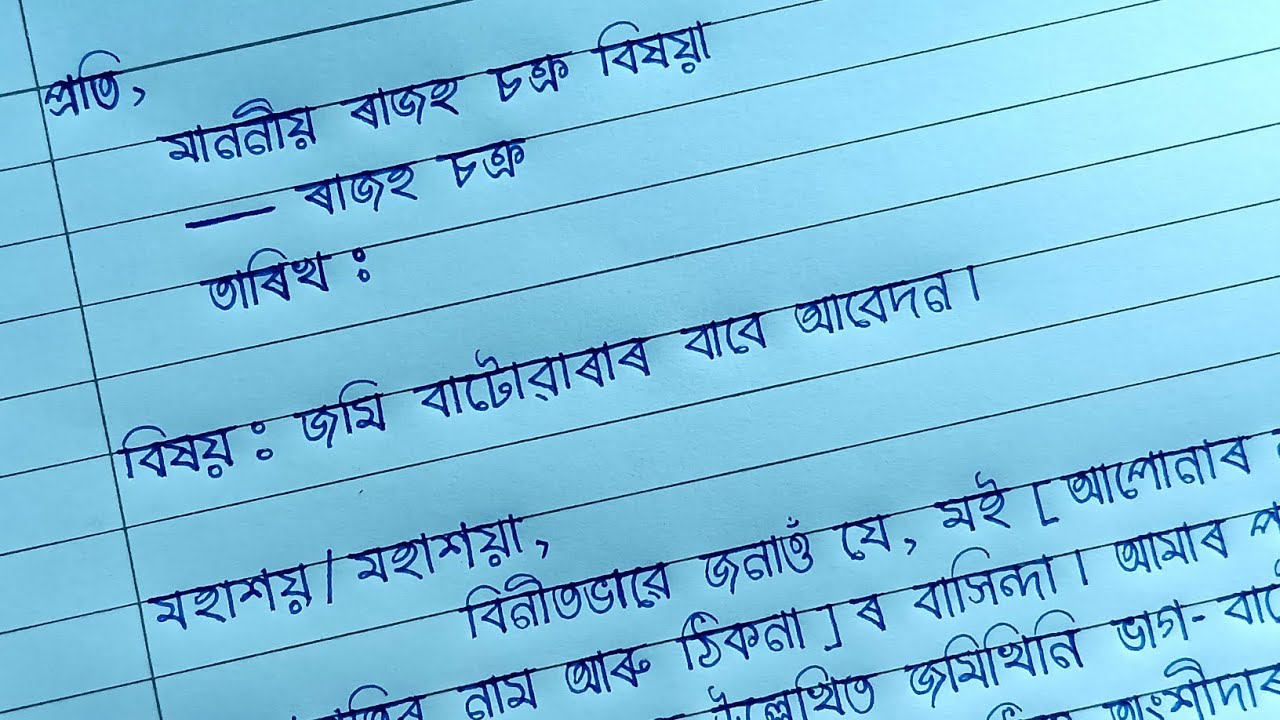 প্ৰতি,
মাননীয় ৰাজহ চক্ৰ বিষয়া
— ৰাজহ চক্ৰ
তাৰিখ :
বিষয় : জমি বাটোৱাৰাৰ বাবে আবেদন।
মহাশয়/মহাশয়া,
বিনীতভাৱে জনাওঁ যে, মই [আপোনাৰ
নাম আৰু ঠিকনা]ৰ বাসিন্দা। আমাৰ
উল্লেখিত জমিখিনি ভাগ-